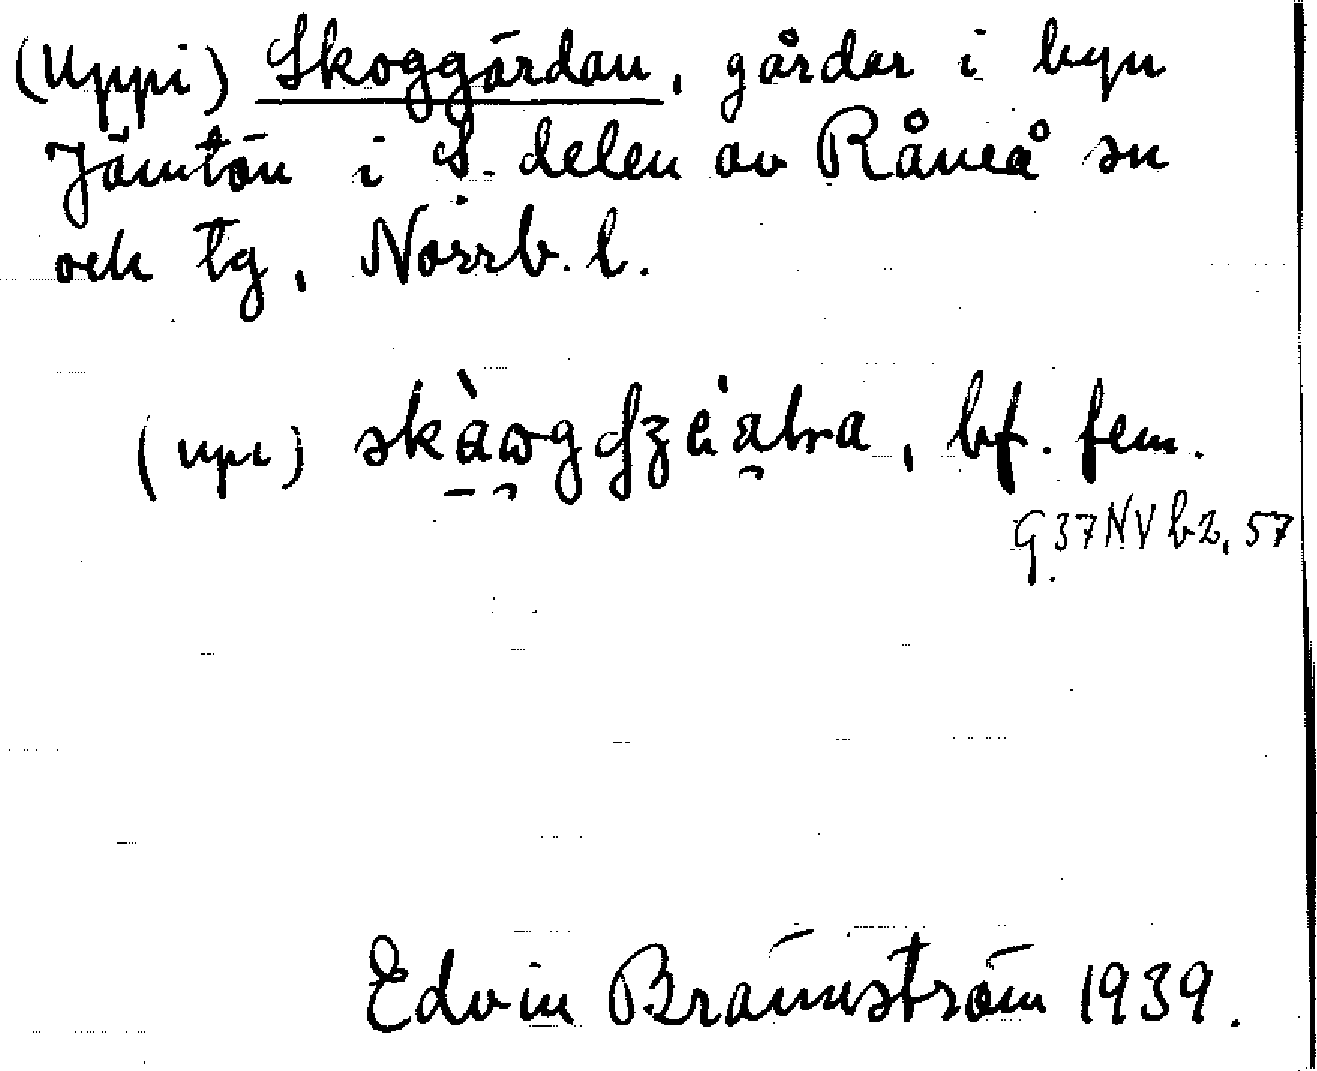 (Uppi) Skoggärdan, gårdar i byn
Jämtön i S. delen av Råneå sn
och tg, Norrb. l.
(upi) bf. fem.
G 37 NV b2, 57
Edvin Brännström 1939.